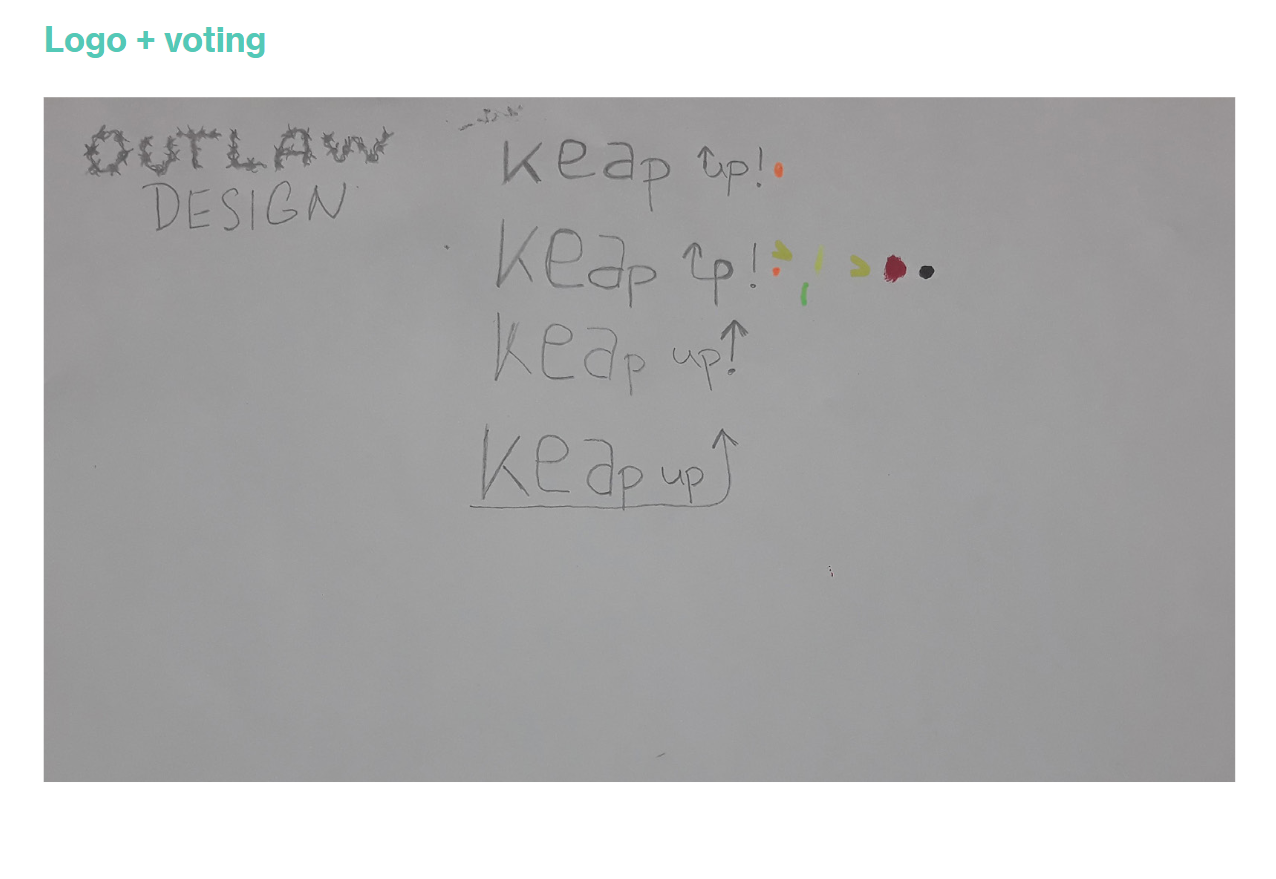 Logo + voting
OUTLAW
DESIGN
keap up!
keap up!
keap up!
keap up